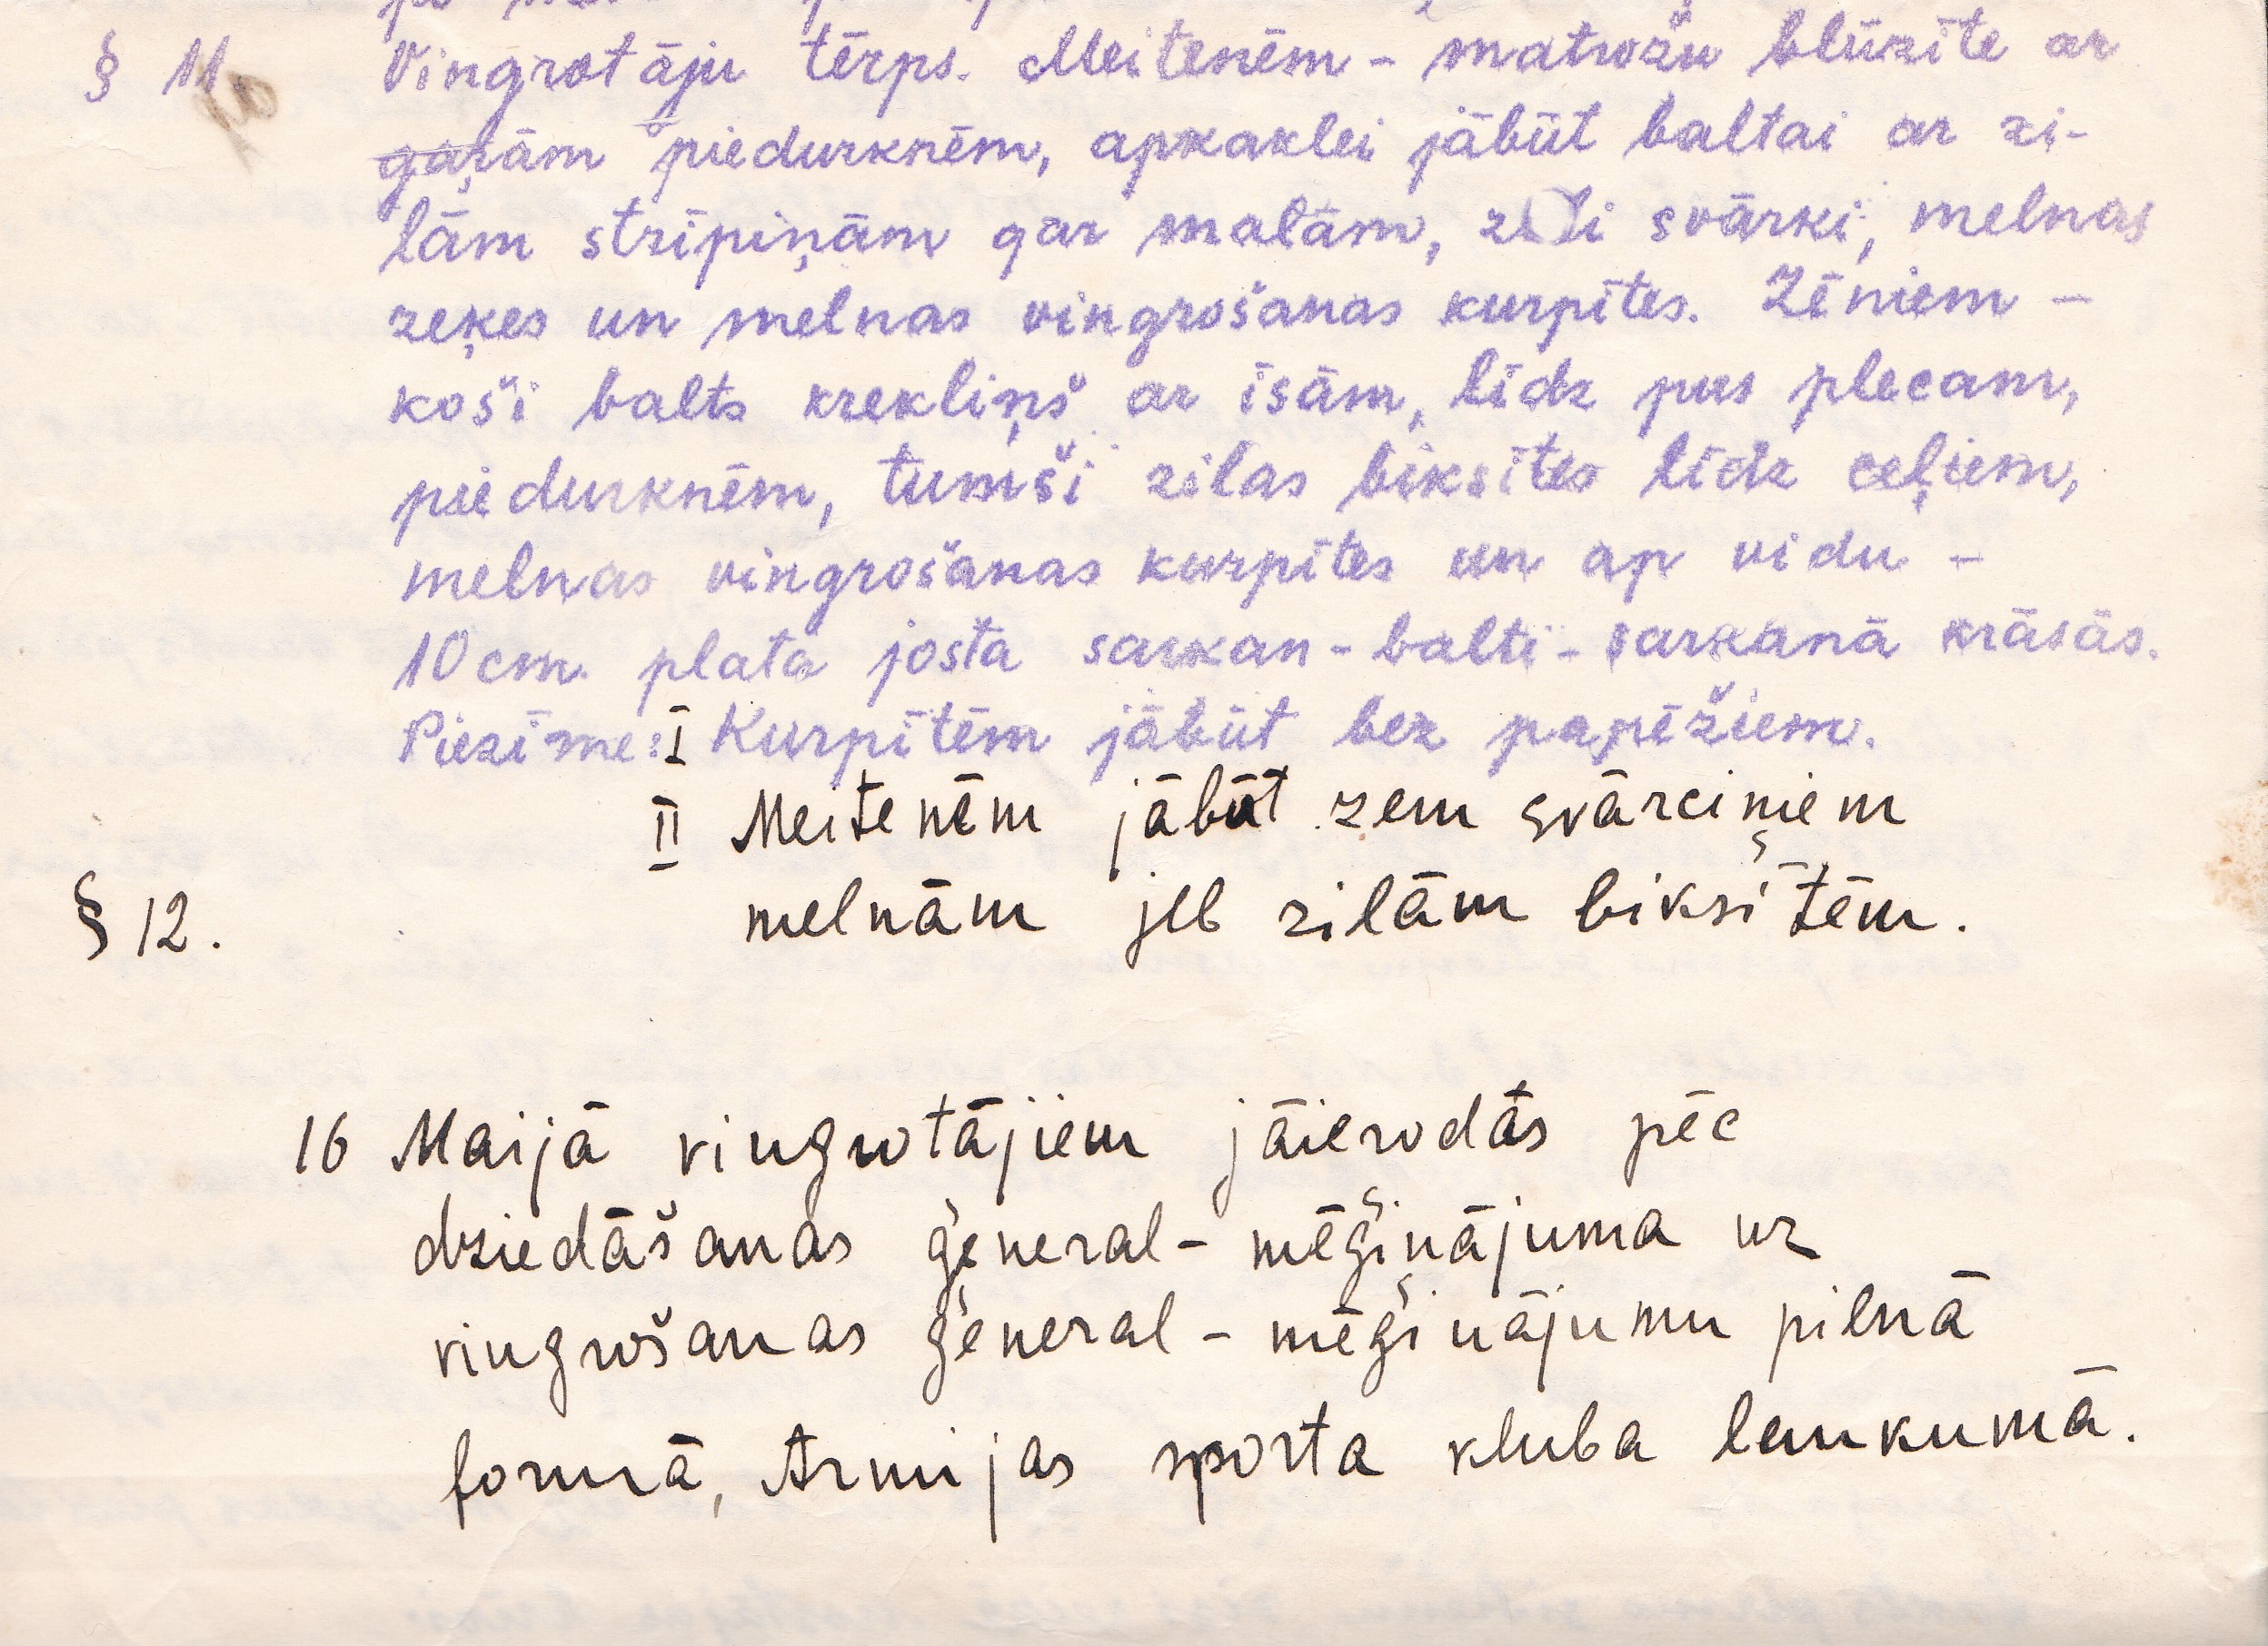 § 11. Vingrotāju tērps. Meitenēm - matrožu blūzīte ar
gaŗām piedurknēm, apkaklei jābūt baltai ar zi-
lām strīpiņām gar malām, zili svārki, melnas
zeķes un melnas vingrošanas kurpītes. Zēniem -
koši balts krekliņš ar īsām, līdz pus plecam,
piedurknēm, tumši zilas biksītes līdz ceļiem,
melnas vingrošanas kurpītes un ap vidu -
10 cm. plata josta sarkan-balti-sarkanā krāsās.
Piezīme: I Kurpītēm jābūt bez papēžiem.
II Meitenēm jābūt zem svārciņiem
§ 12. melnām jeb zilām biksītēm.
16 Maijā vingrotājiem jāierodās pēc
dziedāšanas ģeneral-mēģinājuma uz
vingrošanas ģeneral-mēģinājumu pilnā
formā, Armijas sporta kluba laukumā.